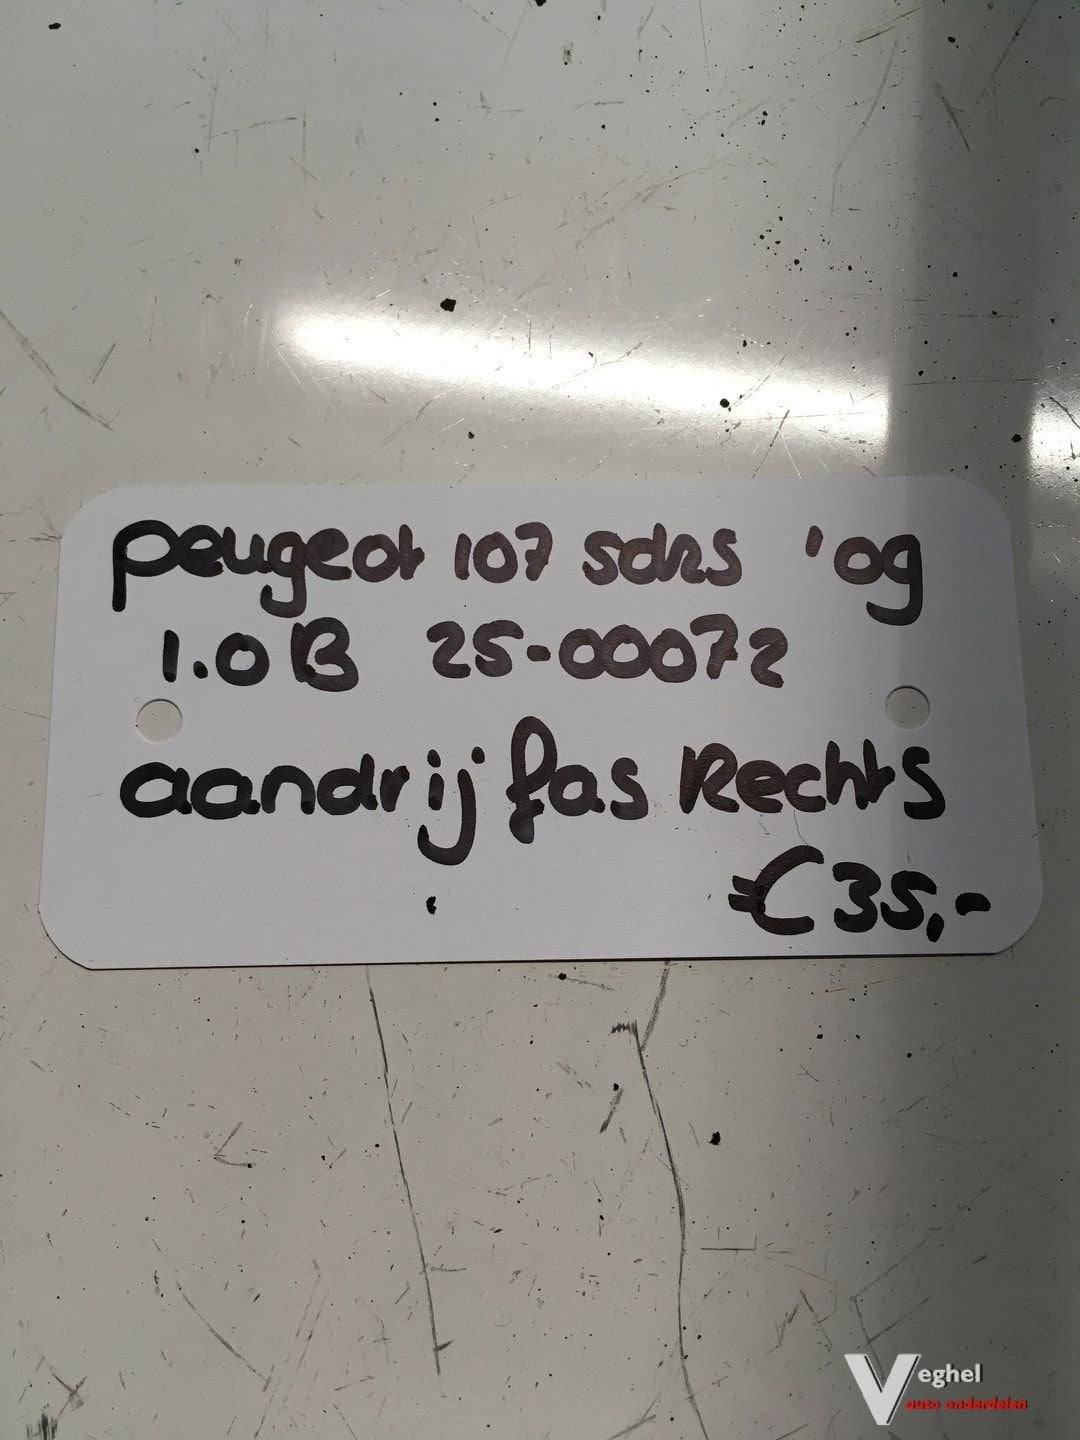 Peugeot 107 5drs '09
1.0 B 25-00072
aandrijfas Rechts
€35,-
Veghel
auto onderdelen